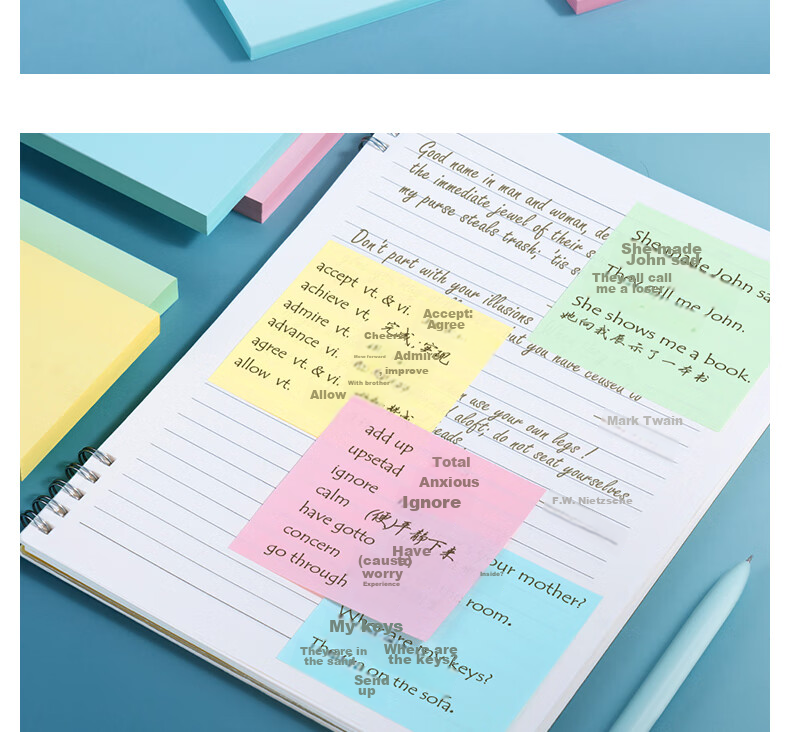 Good name in man and woman, de
the immediate jewel of their s
my purse steals trash; 'tis s
Don't part with your illusions
but you have ceased
use your own legs!
aloft; do not seat yourselves
heads.
Mark Twain
F.W. Nietzsche
She made John sa
They all call me John.
She shows me a book.
她向我展示了一本书
She made
John sad
They all call
me a loser
accept vt. & vi.
achieve vt.
admire vt.
advance vi.
agree vt. & vi.
allow vt.
完成;实现
Accept:
Agree
Cheers
Move forward
Admire
improve
With brother
Allow
add up
upsetad
ignore
calm
have gotto
concern
go through
(使)平静下来
Total
Anxious
Ignore
Have
(cause)
worry
Experience
Inside?
our mother?
room.
Where are my keys?
They're on the sofa.
My keys
They are in
the same
Where are
the keys?
Send
up